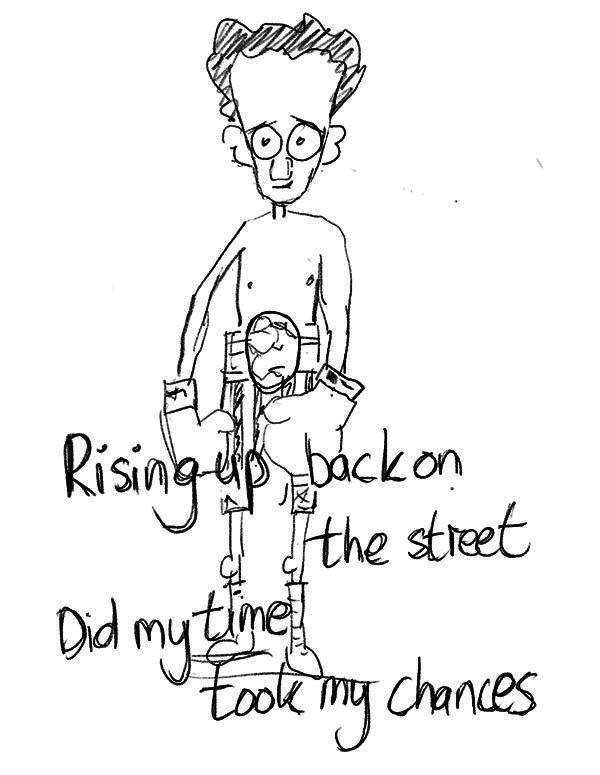 Rising up back on
the street
Did my time
took my chances